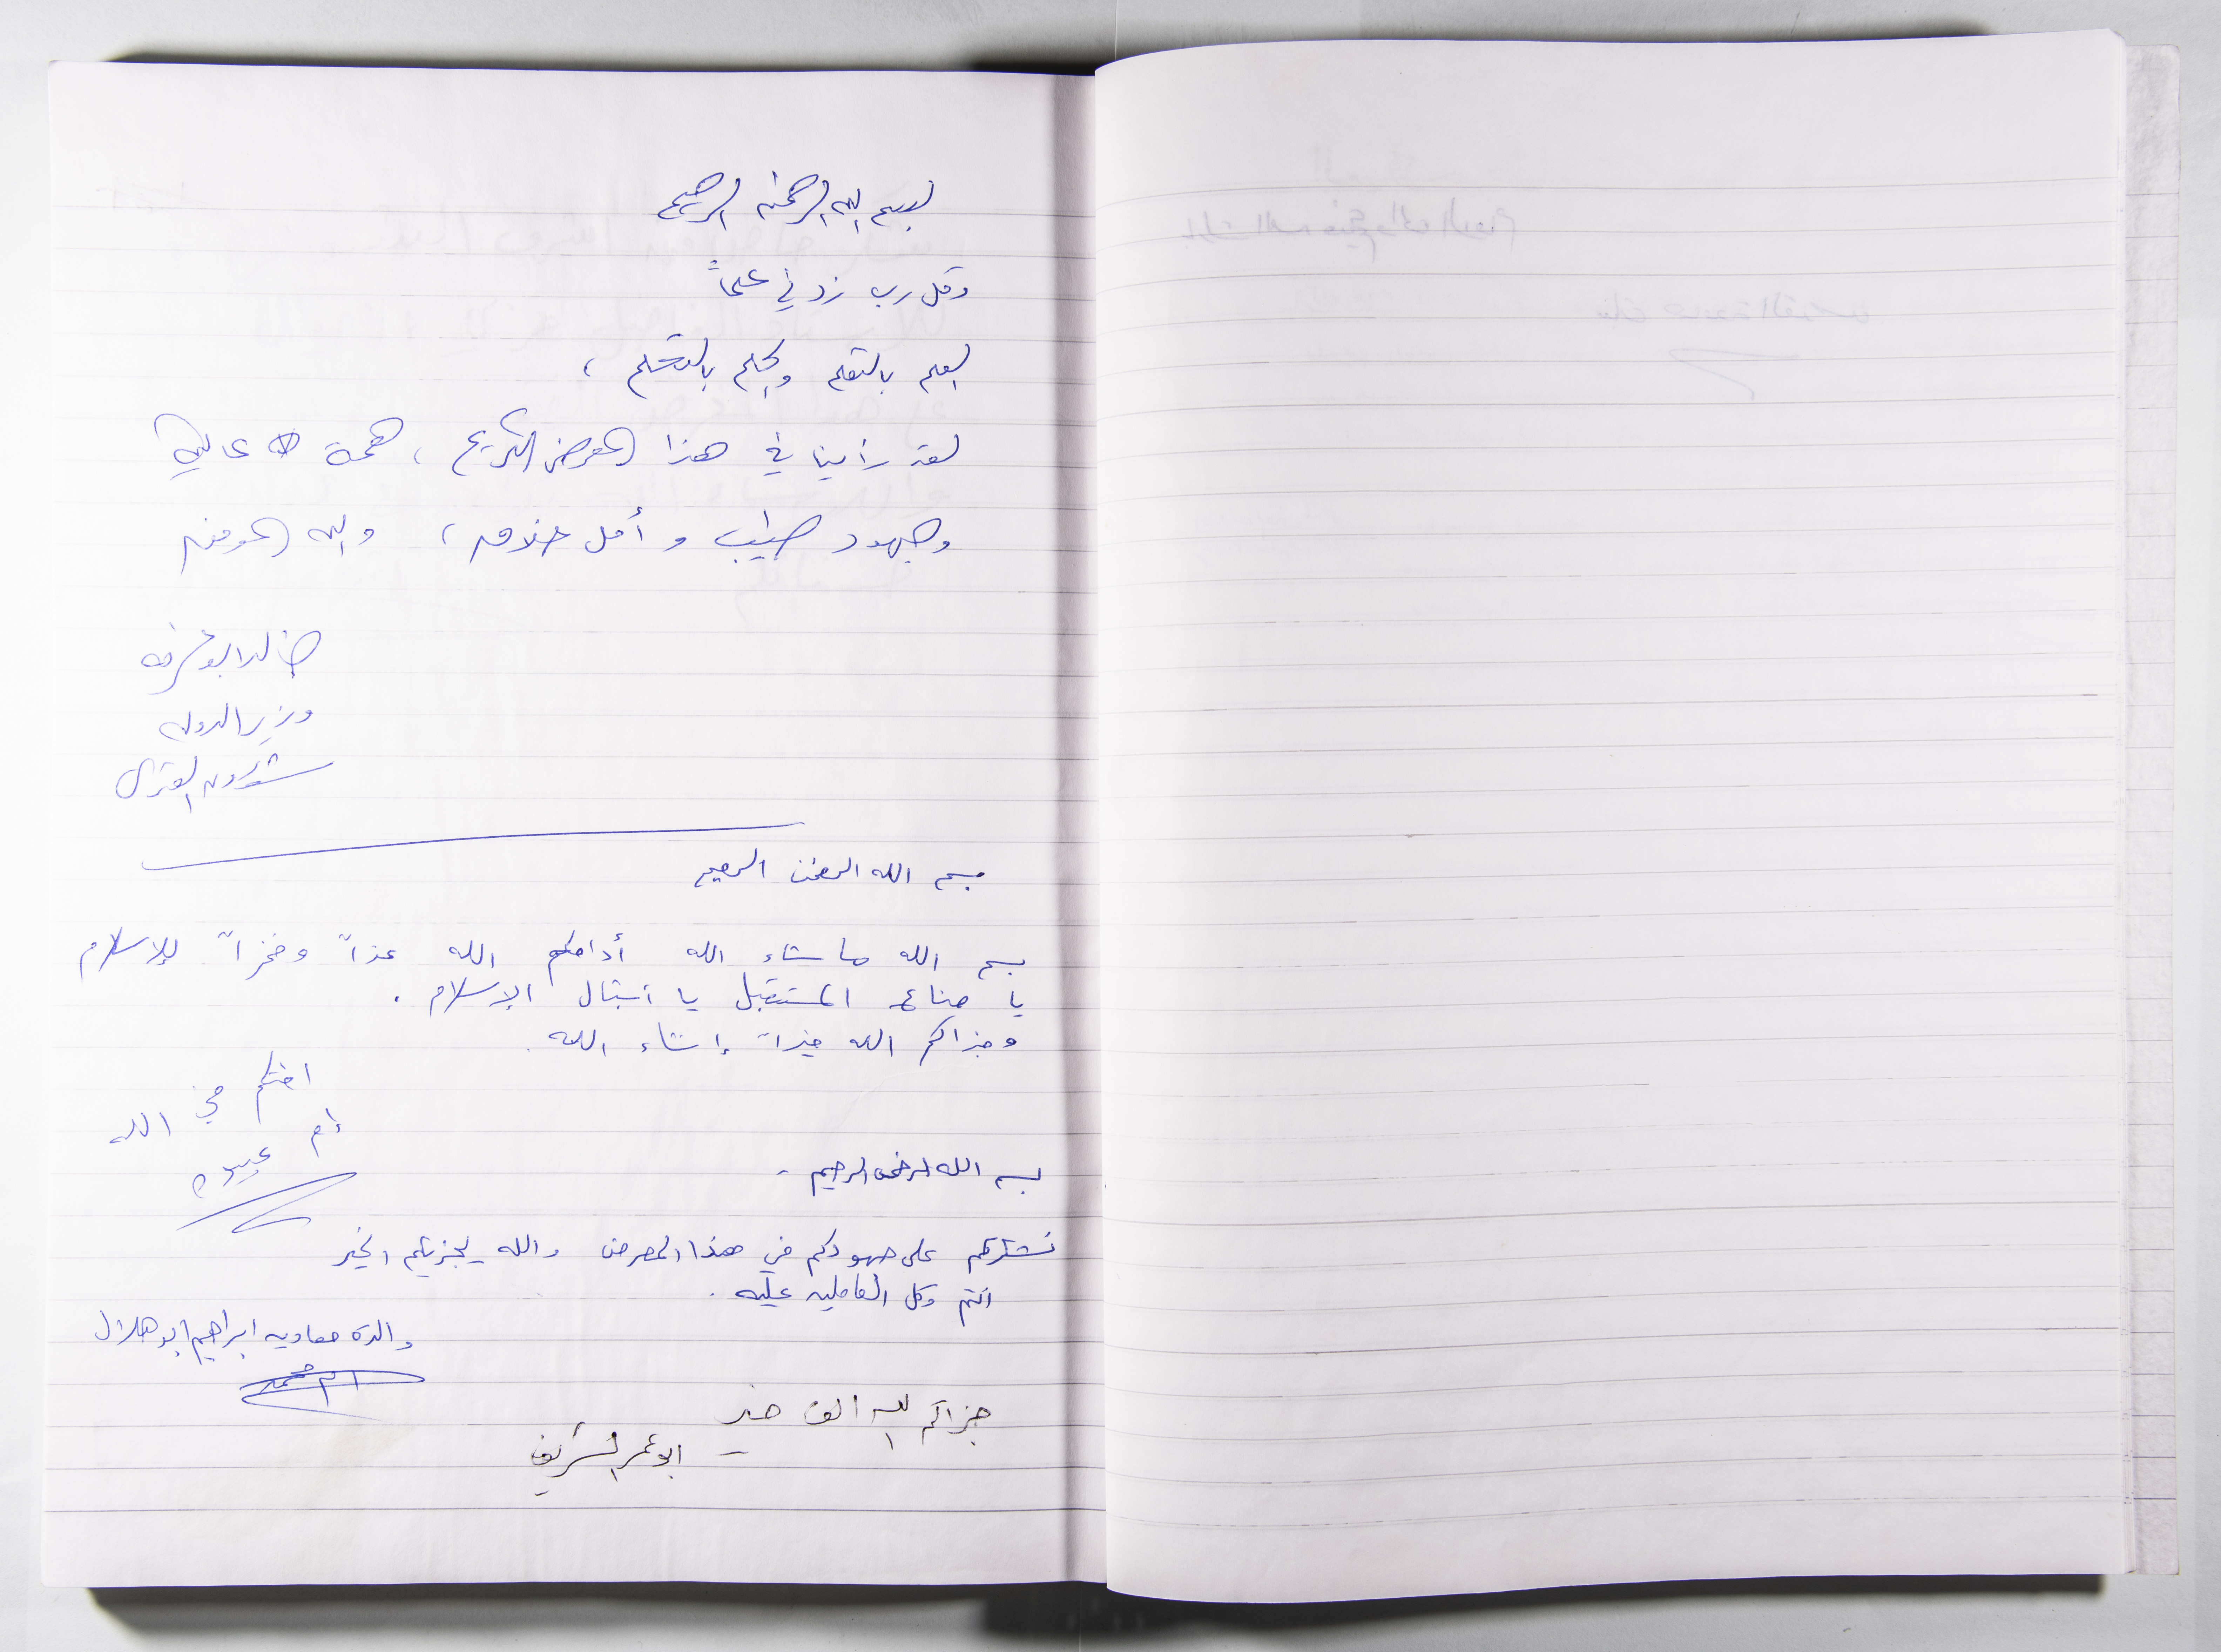 بسم الله الرحمن الرحيم
وقل رب زدني علماً
العلم بالتعلم والحلم بالتحلم ،
لقد رأينا في هذا المعرض الكريم ، همة عالية
وجهود طيب و أمل خلاق ، والله الموفق
خالد ابو عرفه
وزير الدولة
شؤون القدس
بسم الله الرحمن الرحيم
بسم الله ما شاء الله أدامكم الله عزاً وفخراً للإسلام
يا صناع المستقبل يا أشبال الإسلام .
وجزاكم الله خيراً إنشاء الله .
اختكم في الله
أم عبيدة
بسم الله الرحمن الرحيم -
نشكركم على جهودكم في هذا المعرض والله يجزيكم الخير
انتم وكل العاملين عليه .
والدة معاوية ابراهيم ابو هلال
ام محمد
جزاكم الله الف خير
ابو عمر الشريف